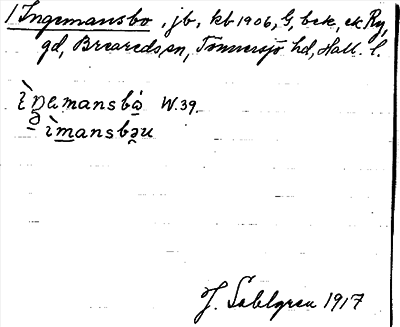 1 Ingemansbo, jb, kb 1906, G, bek, ek Ry,
gd, Breareds sn, Tönnersjö hd, Hall. l.
ìŋemansbó W. 39.
ìmansbəu
J. Sahlgren 1917